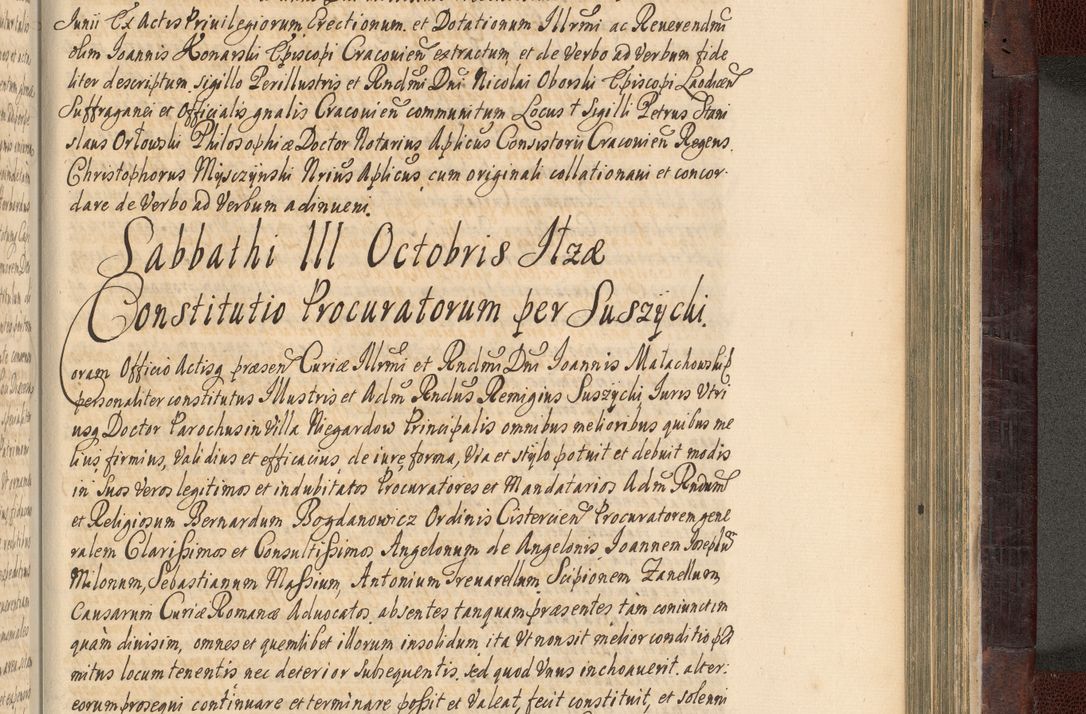 Junii Ex Actis Privilegiorum Erectionum. et Dotationum Illrmi ac Reverendmi
olim Joannis Konarski Episcopi Cracovien extractum et de Verbo ad Verbum fide
liter descriptum sigillo Perillustris et Rndmi Dni Nicolai Oborski Episcopi Laodicen
Suffraganei et Officialis gnalis Cracovien communitum Locus † Sigilli Petrus Stani
slaus Orłowski Philosophiæ Doctor Notarius Aplicus Consistorii Cracovien Regens.
Christophorus Mysczÿnski Nrius Aplicus cum originali collationavi et concor-
dare de Verbo ad Verbum adinveni.
Sabbathi III Octobris Itzæ
Constitutio Procuratorum per Suszÿcki.
Coram Officio Actisq præsen Curiæ Illrmi et Rndmi Dni Joannis Małachowski
personaliter constitutus Illustris et Adm Rndus Remigius Suszÿcki Juris Utri
usq Doctor Parochus in Villa Niegardow Principalis omnibus melioribus quibus me
lius, firmius, Validius et efficacius, de iure, forma, Via et stÿlo potuit et debuit modis
in Suos Veros legitimos et indubitatos Procuratores et Mandatarios Adm Rndum
et Religiosum Bernardum Bogdanowicz Ordinis Cistercien Procuratorem gene
ralem Clarissimos et Consultissimos Angelonum de Angelonis, Joannem Joseph
Milonum, Sebastianum Massium, Antonium Trevarellum Scipionem Zanellum
Causarum Curiæ Romanæ Advocatos absentes tanquam præsentes tàm coniunctim
quàm divisim, omnes et quemlibet illorum insolidum ita Vt non sit melior conditio pri
mitus locum tenentis nec deterior Subsequentis. sed quod Vnus inchoaverit. alter:
eorum prosequi continuare et terminare possit et Valeat, fecit constituit, et solenni